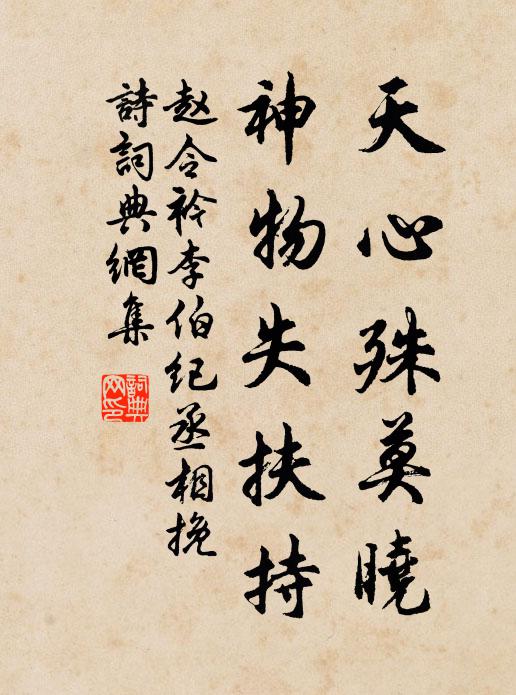 天心殊莫曉
神物失扶持
赵令衿李伯纪丞相挽
詩詞典網集
詞典網印